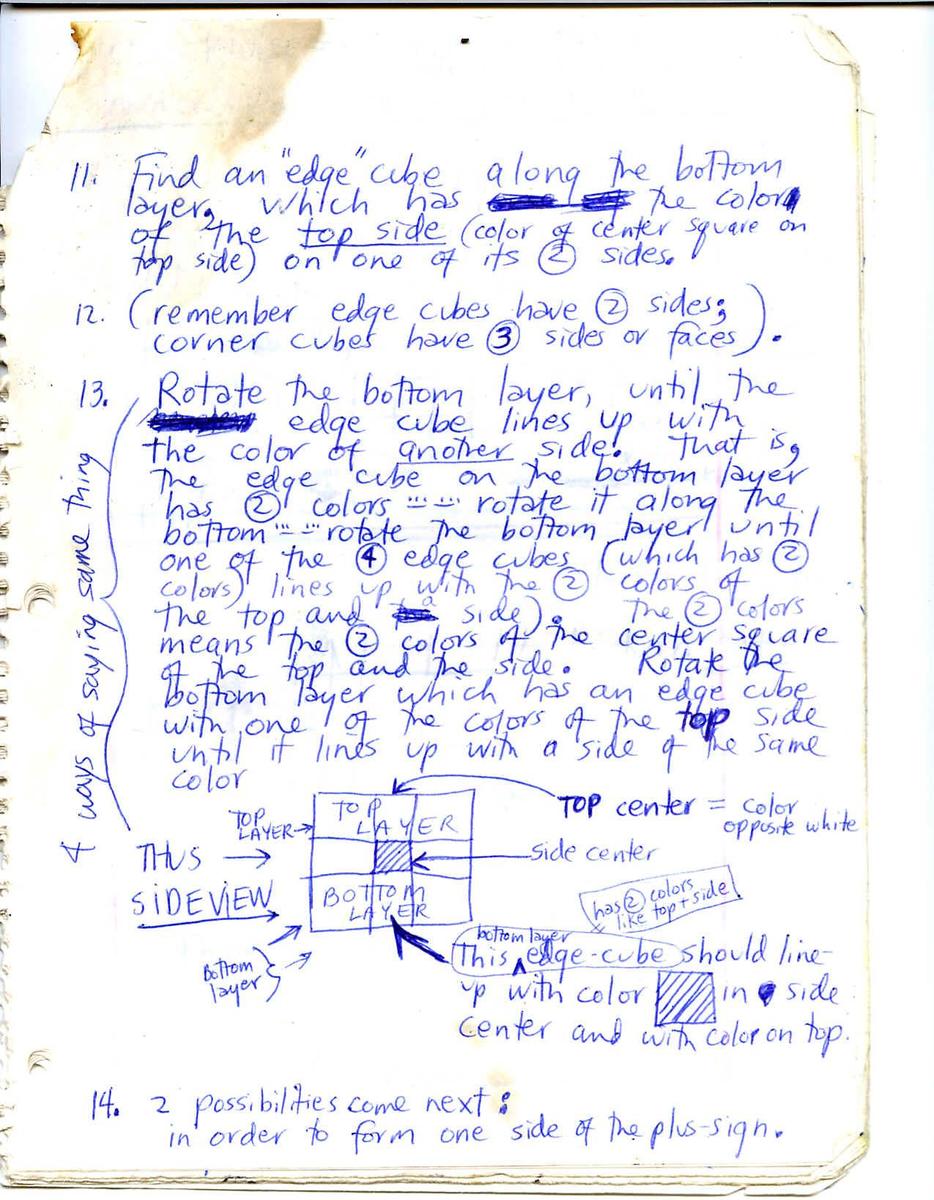 11. Find an "edge" cube along the bottom
layer, which has the color
of the top side (color of center square on
top side) on one of its 2 sides.
12. (remember edge cubes have 2 sides;
corner cubes have 3 sides or faces).
13. Rotate the bottom layer, until the
edge cube lines up with
the color of another side. That is,
the edge cube on the bottom layer
has 2 colors -- -- rotate it along the
bottom -- -- rotate the bottom layer until
one of the 4 edge cubes (which has 2
colors) lines up with the 2 colors of
the top and a side). The 2 colors
means the 2 colors of the center square
of the top and the side. Rotate the
bottom layer which has an edge cube
with one of the colors of the top side
until it lines up with a side of the same
color
4 ways of saying same thing
TOP LAYER
TOP
LAYER
TOP center = color
opposite white
THUS
side center
SIDEVIEW
BOTTOM
LAYER
has 2 colors
like top + side
Bottom
layer
bottom layer
This edge-cube should line-
up with color in side
center and with color on top.
14. 2 possibilities come next:
in order to form one side of the plus-sign.